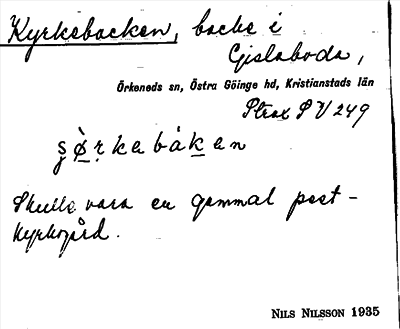 Kyrkebacken, backe i
Gislaboda,
Örkeneds sn, Östra Göinge hd, Kristianstads län
Strax S V 249
Skulle vara en gammal pest-
kyrkogård.
NILS NILSSON 1935